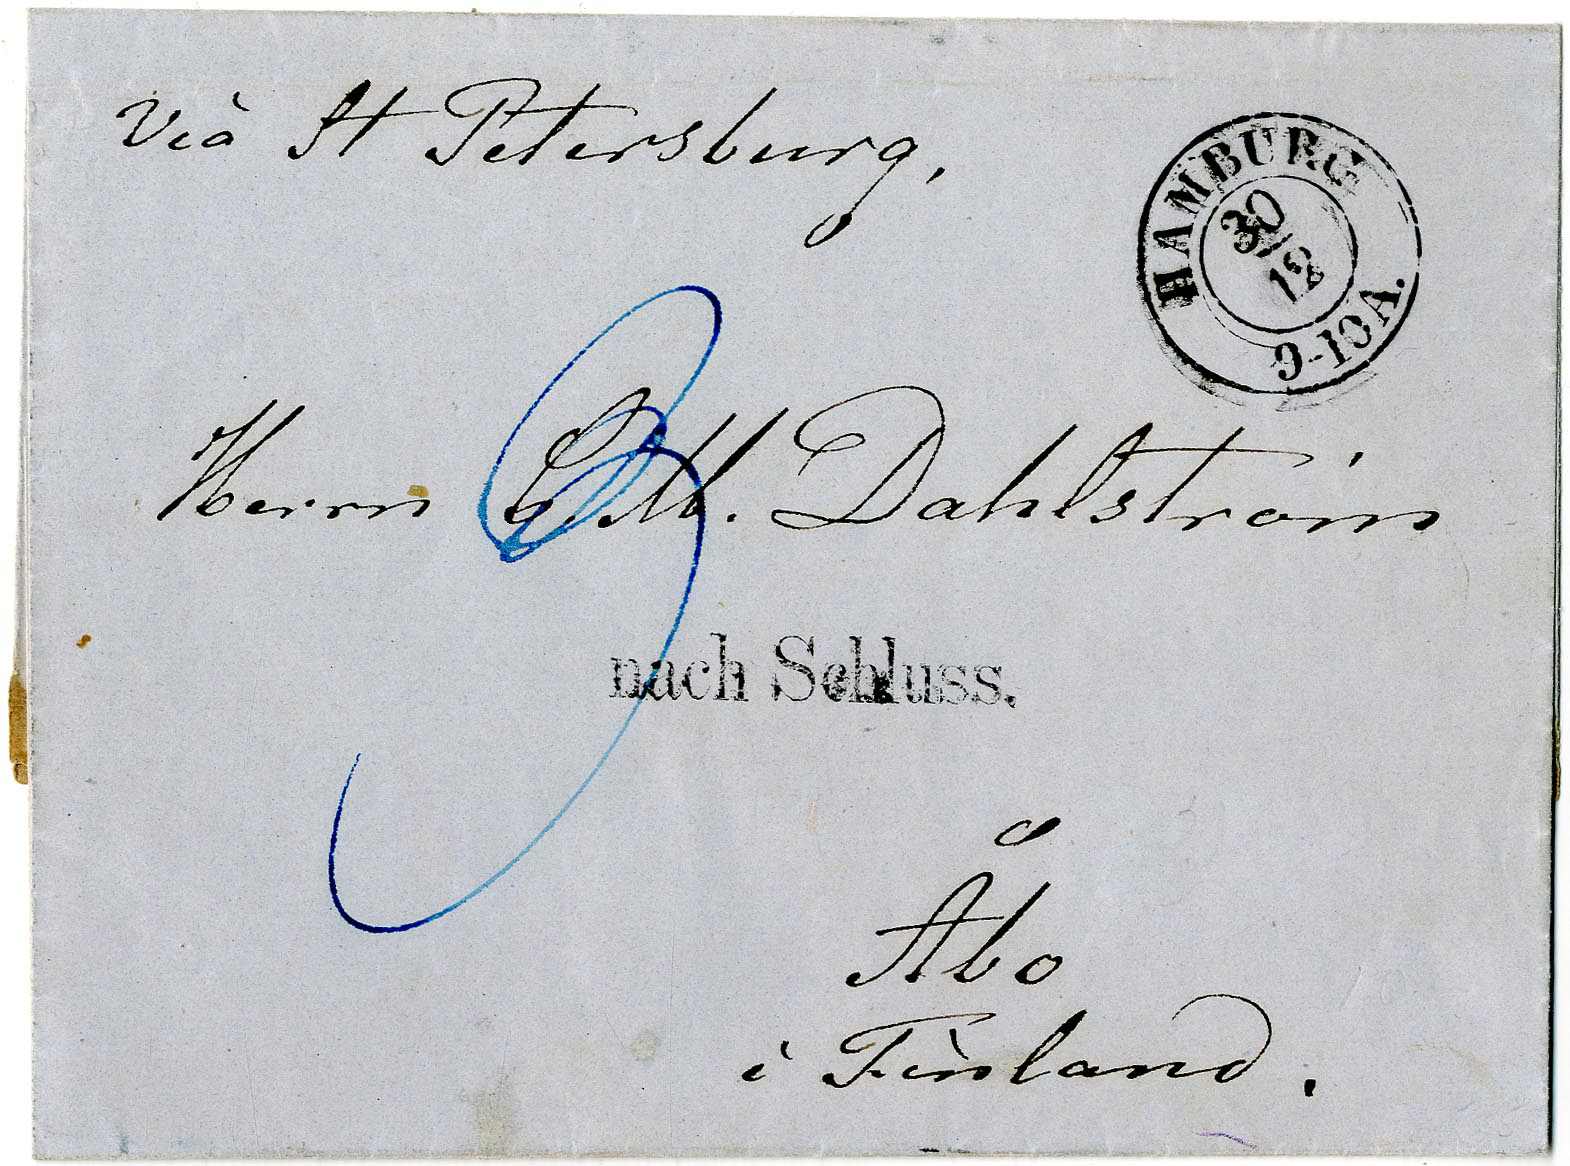 Vià St Petersburg,
HAMBURG
30/12
9-10A.
3
Herrn C. M. Dahlström
nach Schluss.
Åbo
i Finland.